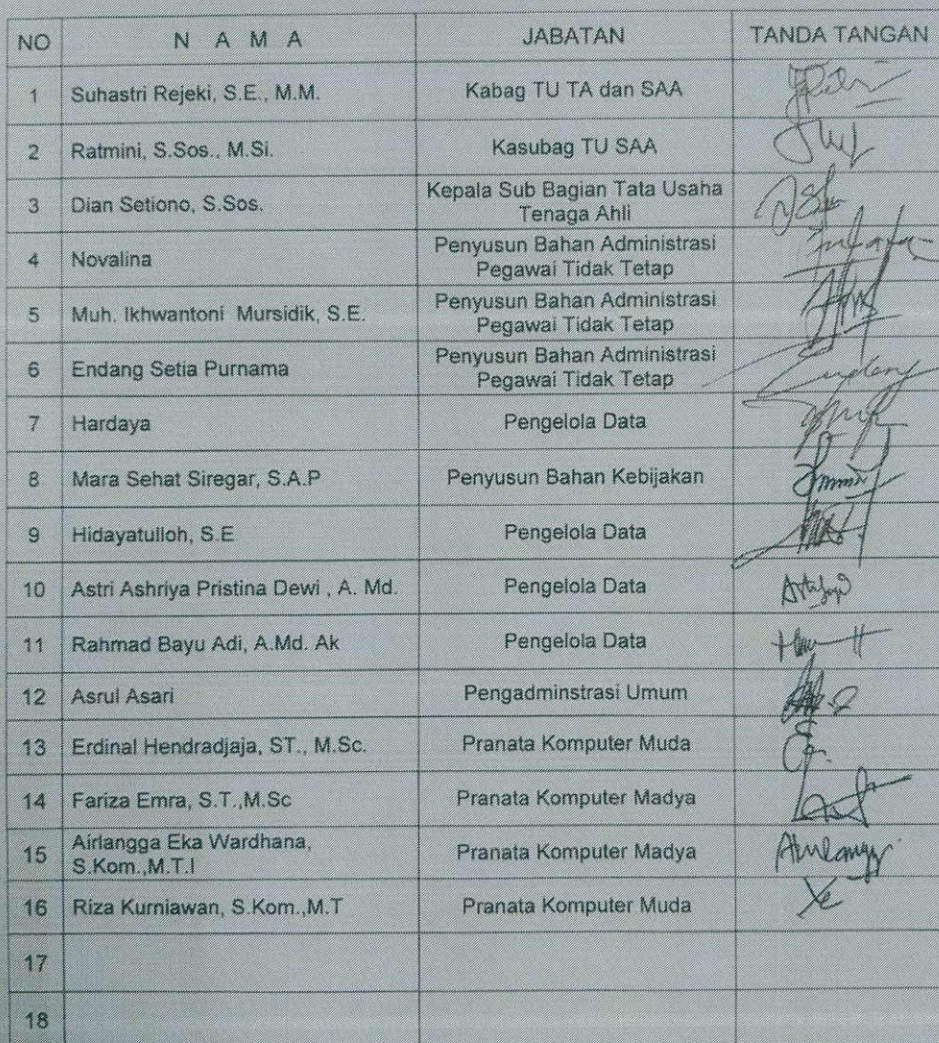 NO N A M A JABATAN TANDA TANGAN
1 Suhastri Rejeki, S.E., M.M. Kabag TU TA dan SAA
2 Ratmini, S.Sos., M.Si. Kasubag TU SAA
3 Dian Setiono, S.Sos. Kepala Sub Bagian Tata Usaha
Tenaga Ahli
4 Novalina Penyusun Bahan Administrasi
Pegawai Tidak Tetap
5 Muh. Ikhwantoni Mursidik, S.E. Penyusun Bahan Administrasi
Pegawai Tidak Tetap
6 Endang Setia Purnama Penyusun Bahan Administrasi
Pegawai Tidak Tetap
7 Hardaya Pengelola Data
8 Mara Sehat Siregar, S.A.P Penyusun Bahan Kebijakan
9 Hidayatulloh, S.E Pengelola Data
10 Astri Ashriya Pristina Dewi , A. Md. Pengelola Data
11 Rahmad Bayu Adi, A.Md. Ak Pengelola Data
12 Asrul Asari Pengadminstrasi Umum
13 Erdinal Hendradjaja, ST., M.Sc. Pranata Komputer Muda
14 Fariza Emra, S.T.,M.Sc Pranata Komputer Madya
15 Airlangga Eka Wardhana,
S.Kom.,M.T.I Pranata Komputer Madya
16 Riza Kurniawan, S.Kom.,M.T Pranata Komputer Muda
17
18